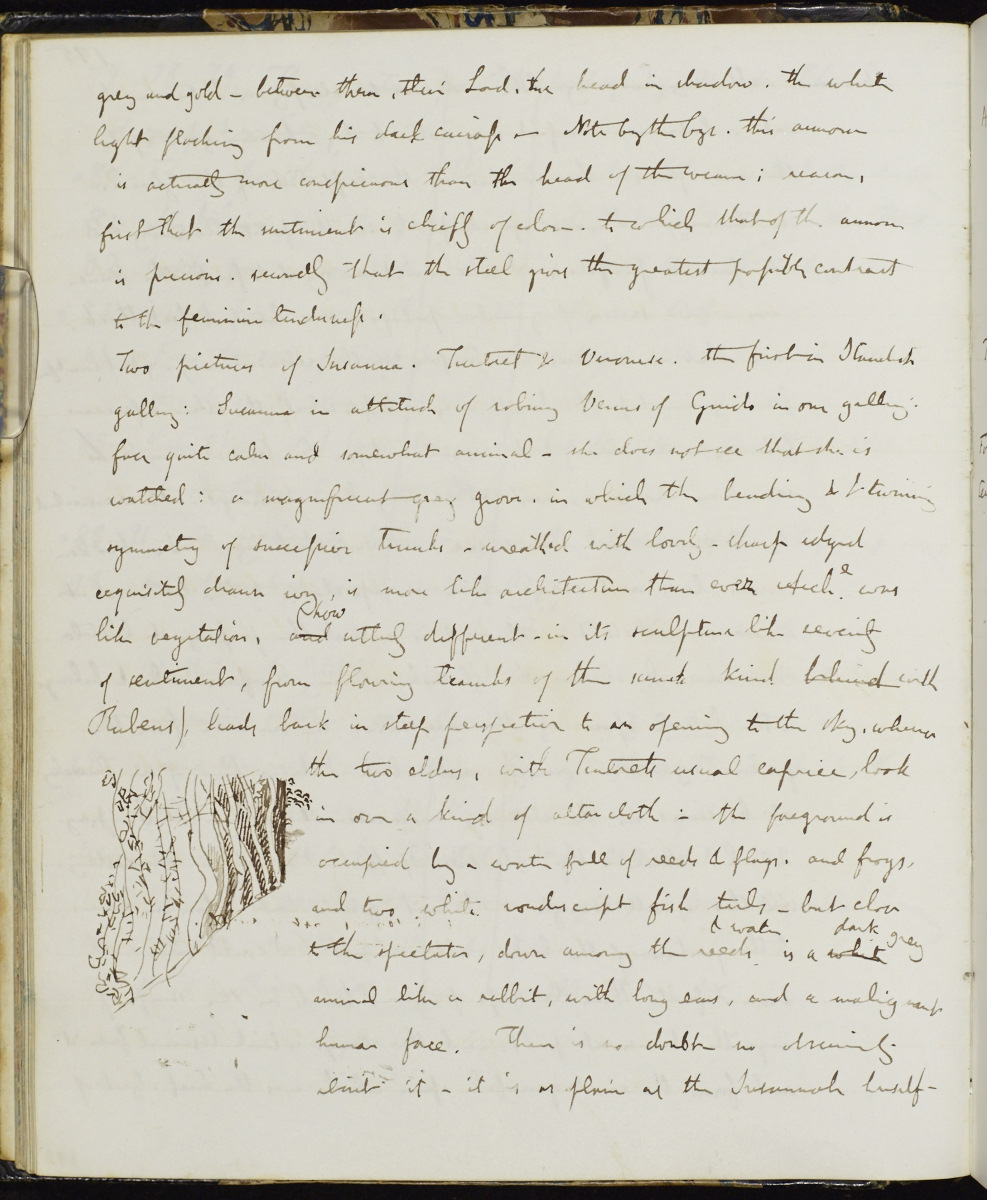 grey and gold - between them, their Lord, the head in shadow. the white
light flashing from his dark cuirass - Note by the bye. this armour
is actually more conspicuous than the head of the woman; reason,
first that the sentiment is chiefly of color - to which that of the armour
is precious. secondly that the steel gives the greatest possible contrast
to the feminine tenderness.
Two pictures of Susanna. Tintoret & Veronese. the first in Standish
gallery: Susanna in attitude of robing Venus of Gnido in our gallery.
face quite calm and somewhat animal - she does not see that she is
watched: a magnificent grey grove. in which the bending & twining
symmetry of successive trunks - wreathed with lovely - sharp edged
exquisitely drawn ivy, is more like architecture than ever was
like vegetation, (how and utterly different - in its sculpture like severity
of sentiment, from flowing branches of the same kind behind with
Rubens), leads back in steep perspective to an opening to the sky, whence
the two elders, with Tintorets usual caprice, look
in over a kind of altar cloth - the foreground is
occupied by a water full of reeds & flags. and frogs.
and two white nondescript fish tails - but close
to the spectator, down among the reeds & water is a white dark grey
animal like a rabbit, with long ears, and a malignant
human face. There is no doubt no obscurity
about it - it is as plain as the Susannah herself -